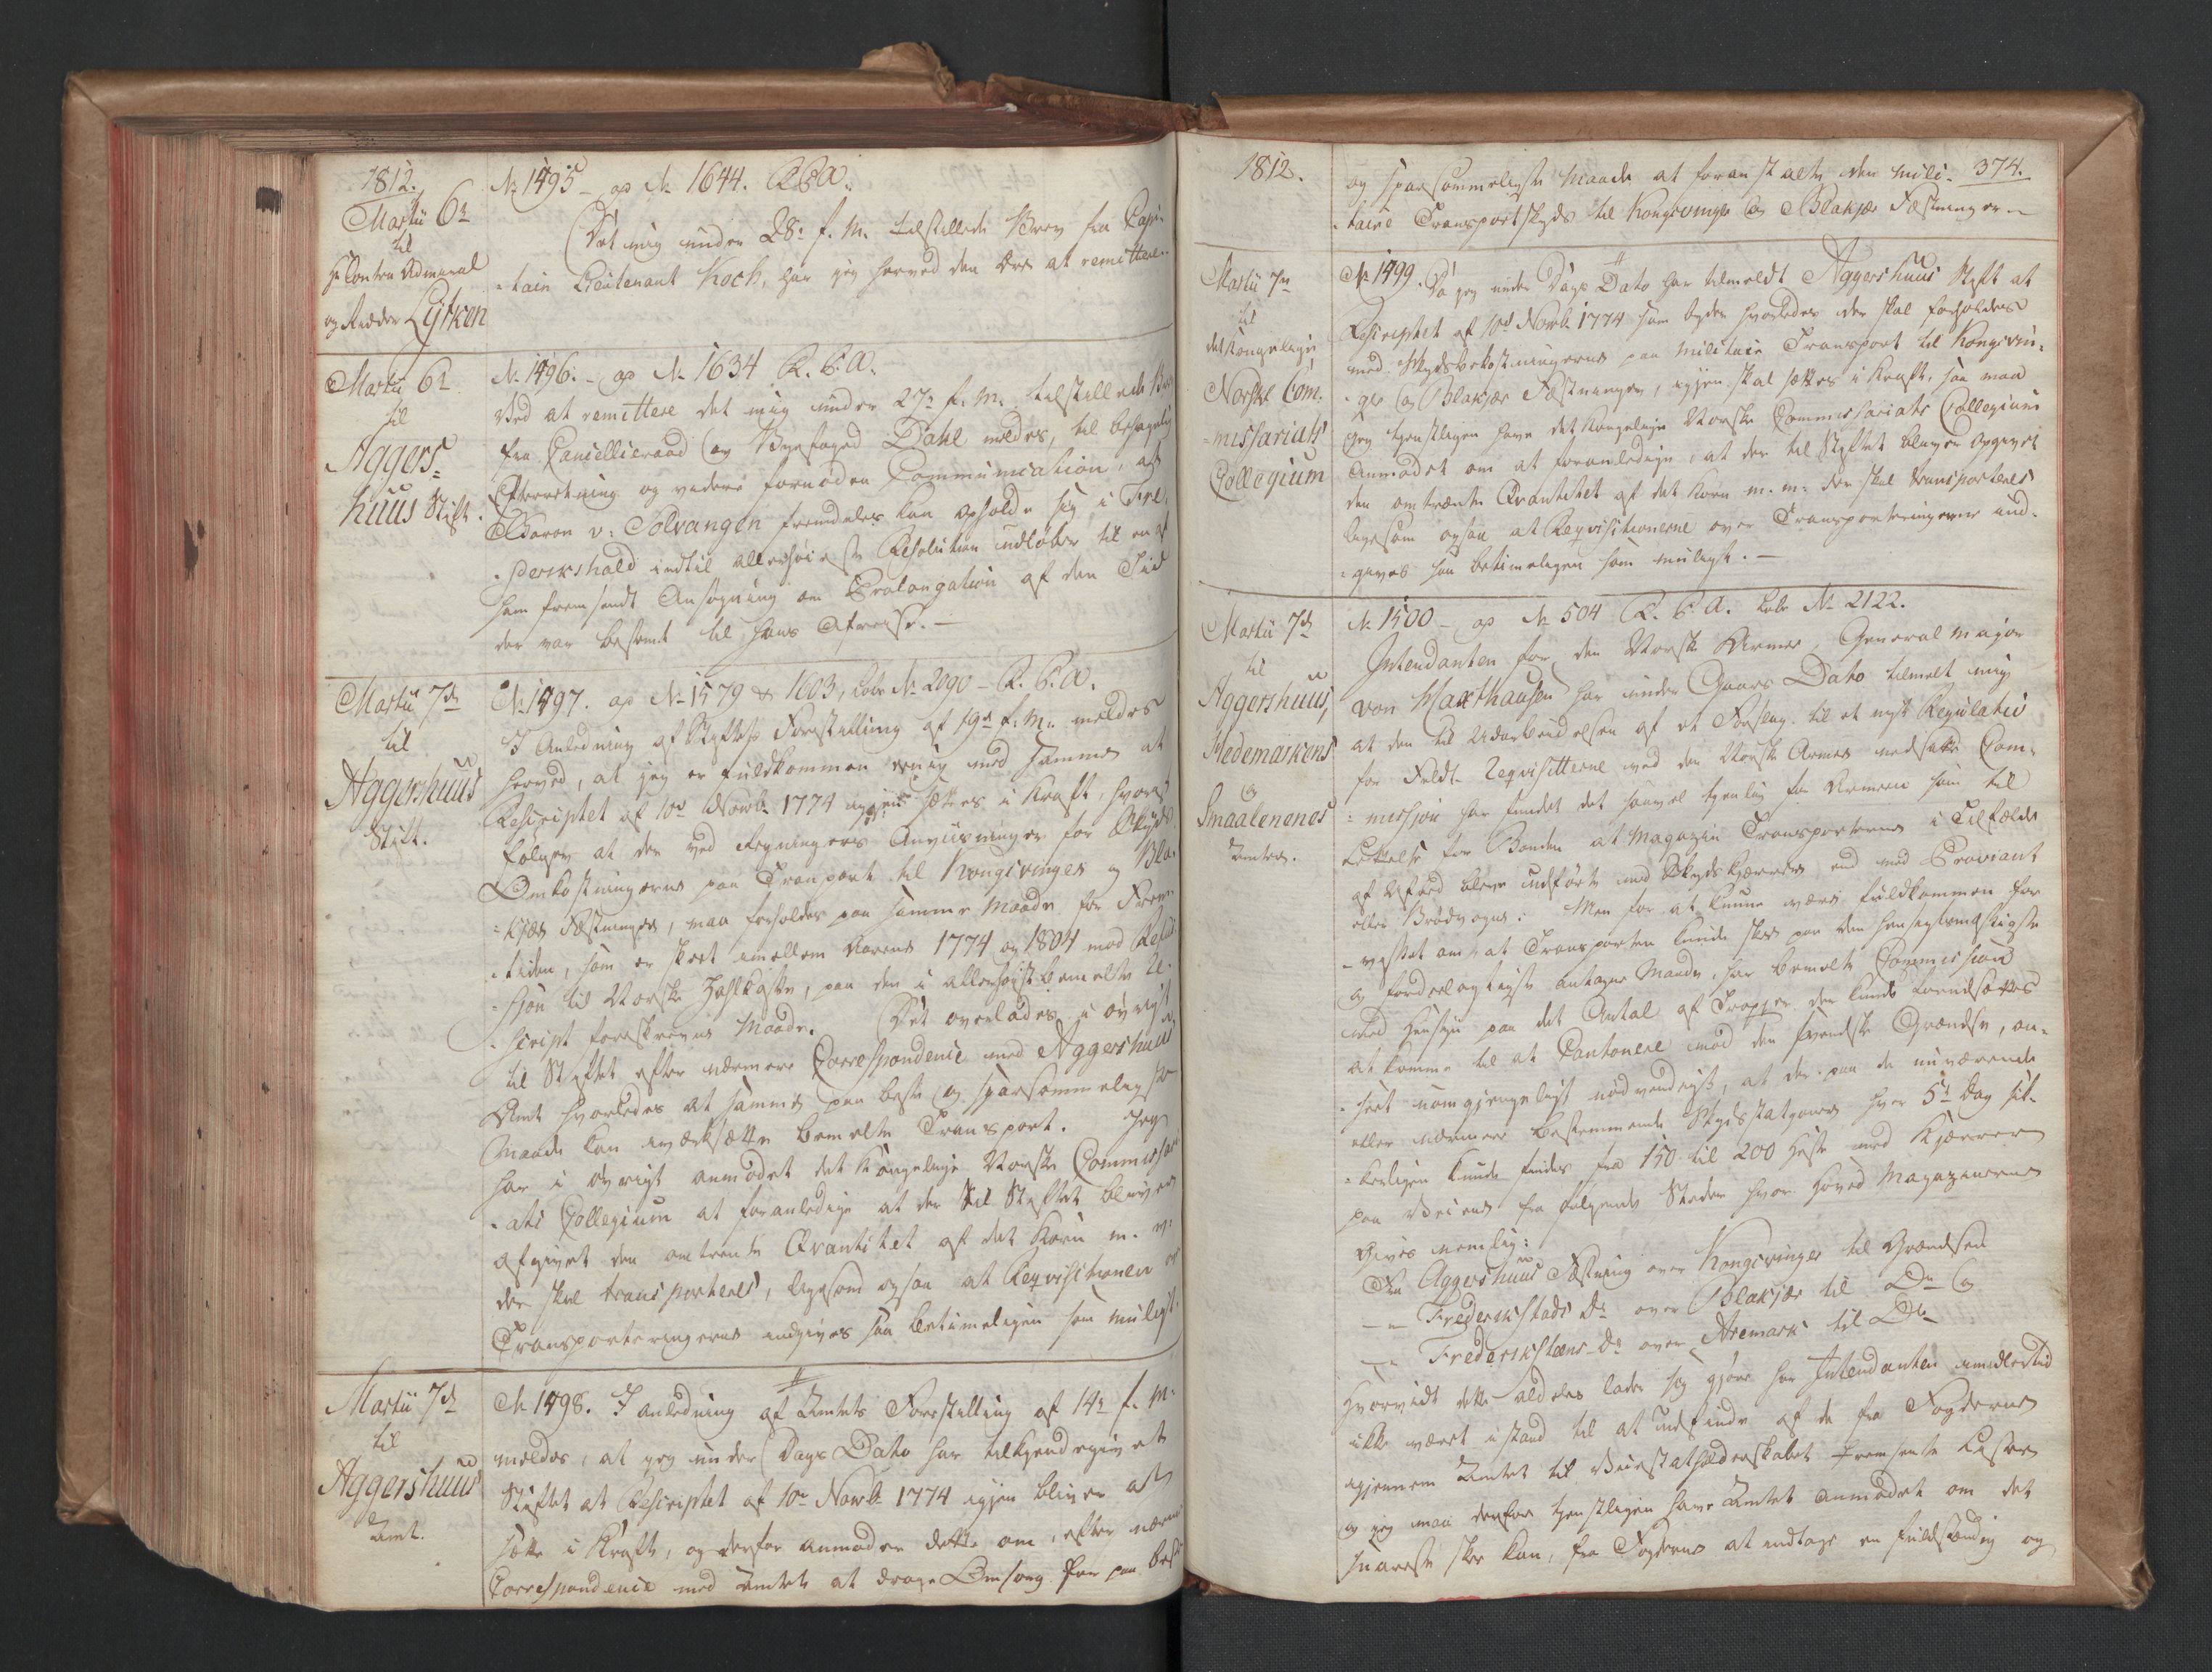 1812.
Martii 6te
til
Hr Contra Admiral
og Ridder Lütken
No 1495 - ad No 1644. R. B. A.
Det mig under 28de f. M. tilstillede Brev fra Capi-
-tain Lieutenant Koch, har jeg herved den Ære at remittere.-
Martii 6te
til
Aggers-
huus Stift.
No 1496. - ad No 1634 R. B. A.
Ved at remittere det mig under 27de f. M. tilstillede Brev
fra Cancellieraad og Byefoged Dahl meldes, til behagelig
Efterretning og videre fornøden Communication, at
Baron v: Solvangen fremdeles kan opholde sig i Fre-
-derikshald indtil allerhøieste Resolution indløber til en af
ham fremsendt Ansøgning om Prolongation af den Tid
der var bestemt til hans Afreise. -
Martii 7de
til
Aggershuus
Stift.
No 1497. ad No 1579 & 1603, Lobe No 2090 - R. B. A.
I Anledning af Stiftets Forestilling af 19de f. M. meldes
herved, at jeg er fuldkommen eenig med samme at
Rescriptet af 10de Novbr 1774 igjen sættes i Kraft, hvoraf
følger at der ved Regningers Anviisninger for Skyds
Omkostningerne paa Transport til Kongsvinger og Bla-
-kjær Fæstninger, maa forholdes paa samme Maade for Frem-
-tiden, som er skeet imellem Aarene 1774 og 1804 mod Refu-
-sion til Norske Zahlkasse, paa den i allerhøistbemelte Re-
-script foreskrevne Maade. Det overlades i øvrigt
til Stiftet efter nærmere Correspondence med Aggershuus
Amt hvorledes at samme paa beste og sparsommeligste
Maade kan iværksætte bemelte Transport. Jeg
har i øvrigt anmodet det Kongelige Norske Commissari-
-ats Collegium at foranledige at der til Stiftet bliver
opgivet den omtrente Qvantitet af det Korn m. v:
der skal transporteres, ligesom ogsaa at Reqvisitionen over
Transporteringerne indgives saa betimeligen som muligt.
Martii 7de
til
Aggershuus
Amt.
No 1498. I Anledning af Amtets Forestilling af 14de f. M.
meldes, at jeg under Dags Dato har tilkjendegivet
Stiftet at Rescriptet af 10de Novbr 1774 igjen bliver at
sætte i Kraft, og derfor anmoder dette om, efter nærmere
Correspondence med Amtet at drage Omsorg for paa beste
1812.
374.
og sparsommeligste Maade at foranstalte den mili-
-taire Transportskyds til Kongsvinger og Blakjær Fæstninger -
Martii 7de
til
det Kongelige
Norske Com-
-missariats
Collegium
No 1499. Da jeg under Dags Dato har tilmeldt Aggershuus Stift at
Rescriptet af 10de Novbr 1774 som byder hvorledes der skal forholdes
med Skydsbekostningerne paa militair Transport til Kongsvin-
-ger og Blakjær Fæstninger, igjen skal sættes i Kraft, saa maa
jeg tjenstligen have det Kongelige Norske Commissariats Collegium
anmodet om at foranledige, at der til Stiftet bliver opgivet
den omtrente Qvantitet af det Korn m. m: der skal transporteres
ligesom ogsaa at Reqvisitionerne over Transporteringerne ind-
-gives saa betimeligen som muligt. -
Martii 7de
til
Aggershuus,
Hedemarkens
og
Smaalenenes
Amter.
No 1500 - ad No 504 R. B. A. Lobe No 2122.
Intendanten for den Norske Armee, General Major
von Haxthausen har under Gaars Dato tilmelt mig
at den til Udarbeidelsen af et Forslag til et nyt Regulativ
for Feldt-Reqvisitterne ved den Norske Armee nedsatte Com-
-mission har fundet det saavel tjenlig for Armeen som til
Lettelse for Bonden at Magazin Transporterne i Tilfælde
af Ufred bleve udførte med Skydskjærrer end med Proviant
eller Brødvogne. Men for at kunne være fuldkommen for-
-visset om at Transporten kunde skee paa den hensigtsmæssigste
og fordeelagtigste antagne Maade, har bemelte Commission
med Hensyn paa det Antal af Tropper der kunde
at komme til at Cantonere mod den svendske Grændse, an-
-seet uomgjengeligt nødvendigt, at der paa de nuværende
eller nærmere bestemmende Skydsstationer hver 5te Dag sik-
-kerligen kunde findes fra 150 til 200 Heste med Kjærrer
paa Veiene fra følgende Steder hvor Hoved Magazinerne
haves nemlig:
Fra Aggershuus Fæstning over Kongsvinger til Grændsen
-"- Frederikstads Do over Blakjær til Do og
-"- Frederikstens Do over Aremark til Do
Hvorvidt dette aldeles lader sig gjøre har Intendanten imidlertid
ikke været istand til at udfinde af de fra Fogderne
igjennem Amtet til Vicestatholderskabet fremsendte Lister
og jeg maa derfor tjenstligen have Amtet anmodet om det
snareste skee kan, fra Fogderne at indtage en fuldstændig og